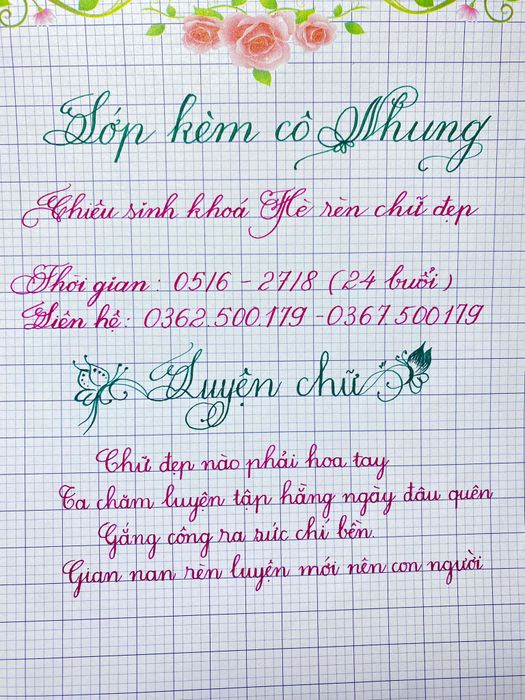 Lớp kèm cô Nhung
Chiêu sinh khoá Hè rèn chữ đẹp
Thời gian: 05/6 - 27/8 (24 buổi)
Liên hệ: 0362.500.179 - 0367.500179
Luyện chữ
Chữ đẹp nào phải hoa tay
Ta chăm luyện tập hằng ngày đâu quên
Gắng công ra sức chí bền.
Gian nan rèn luyện mới nên con người